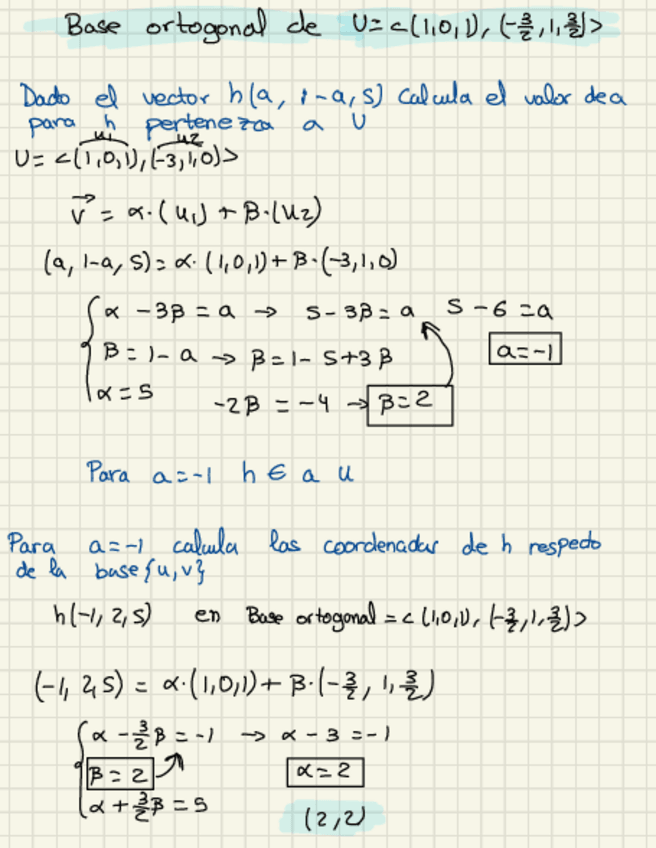 Base ortogonal de U=<(1,0,1), (-3/2,1,3/2)>
Dado el vector h(a, 1-a, 5) calcula el valor de a
para h pertenezca a U
u1 u2
U= <(1,0,1),(-3,1,0)>
v⃗ = α·(u1) + β·(u2)
(a, 1-a, 5) = α·(1,0,1) + β·(-3,1,0)
α -3β = a → 5-3β = a 5-6=a
β = 1-a → β=1-5+3β a=-1
α=5 -2β = -4 → β=2
Para a=-1 h ∈ a U
Para a=-1 calcula las coordenadas de h respecto
de la base {u,v}
h(-1, 2, 5) en Base ortogonal = < (1,0,1), (-3/2,1,3/2)>
(-1, 2, 5) = α·(1,0,1) + β·(-3/2, 1, 3/2)
α - 3/2 β = -1 → α - 3 = -1
β = 2 α=2
α + 3/2 β = 5
(2,2)